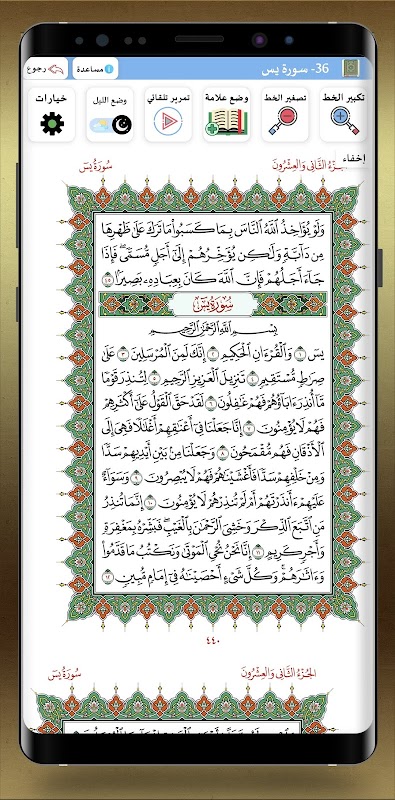 36- سورة يس
مساعدة
رجوع
تكبير الخط
تصغير الخط
وضع علامة
تمرير تلقائي
وضع الليل
خيارات
إخفاء
الجزء الثاني والعشرون
سورة يس
وَلَوْ يُؤَاخِذُ ٱللَّهُ ٱلنَّاسَ بِمَا كَسَبُوا۟ مَا تَرَكَ عَلَىٰ ظَهْرِهَا
مِن دَآبَّةٍ وَلَٰكِن يُؤَخِّرُهُمْ إِلَىٰٓ أَجَلٍ مُّسَمًّى ۖ فَإِذَا
جَآءَ أَجَلُهُمْ فَإِنَّ ٱللَّهَ كَانَ بِعِبَادِهِۦ بَصِيرًۢا ٤٥
سُورَةُ يسٓ
بِسْمِ ٱللَّهِ ٱلرَّحْمَٰنِ ٱلرَّحِيمِ
يسٓ ١ وَٱلْقُرْءَانِ ٱلْحَكِيمِ ٢ إِنَّكَ لَمِنَ ٱلْمُرْسَلِينَ ٣ عَلَىٰ
صِرَٰطٍ مُّسْتَقِيمٍ ٤ تَنزِيلَ ٱلْعَزِيزِ ٱلرَّحِيمِ ٥ لِتُنذِرَ قَوْمًا
مَّآ أُنذِرَ ءَابَآؤُهُمْ فَهُمْ غَٰفِلُونَ ٦ لَقَدْ حَقَّ ٱلْقَوْلُ عَلَىٰٓ أَكْثَرِهِمْ
فَهُمْ لَا يُؤْمِنُونَ ٧ إِنَّا جَعَلْنَا فِىٓ أَعْنَٰقِهِمْ أَغْلَٰلًا فَهِىَ إِلَى
ٱلْأَذْقَانِ فَهُم مُّقْمَحُونَ ٨ وَجَعَلْنَا مِنۢ بَيْنِ أَيْدِيهِمْ سَدًّا
وَمِنْ خَلْفِهِمْ سَدًّا فَأَغْشَيْنَٰهُمْ فَهُمْ لَا يُبْصِرُونَ ٩ وَسَوَآءٌ
عَلَيْهِمْ ءَأَنذَرْتَهُمْ أَمْ لَمْ تُنذِرْهُمْ لَا يُؤْمِنُونَ ١٠ إِنَّمَا تُنذِرُ
مَنِ ٱتَّبَعَ ٱلذِّكْرَ وَخَشِىَ ٱلرَّحْمَٰنَ بِٱلْغَيْبِ ۖ فَبَشِّرْهُ بِمَغْفِرَةٍ
وَأَجْرٍ كَرِيمٍ ١١ إِنَّا نَحْنُ نُحْىِ ٱلْمَوْتَىٰ وَنَكْتُبُ مَا قَدَّمُوا۟
وَءَاثَٰرَهُمْ ۚ وَكُلَّ شَىْءٍ أَحْصَيْنَٰهُ فِىٓ إِمَامٍ مُّبِينٍ ١٢
٤٤٠
الجزء الثاني والعشرون
سورة يس